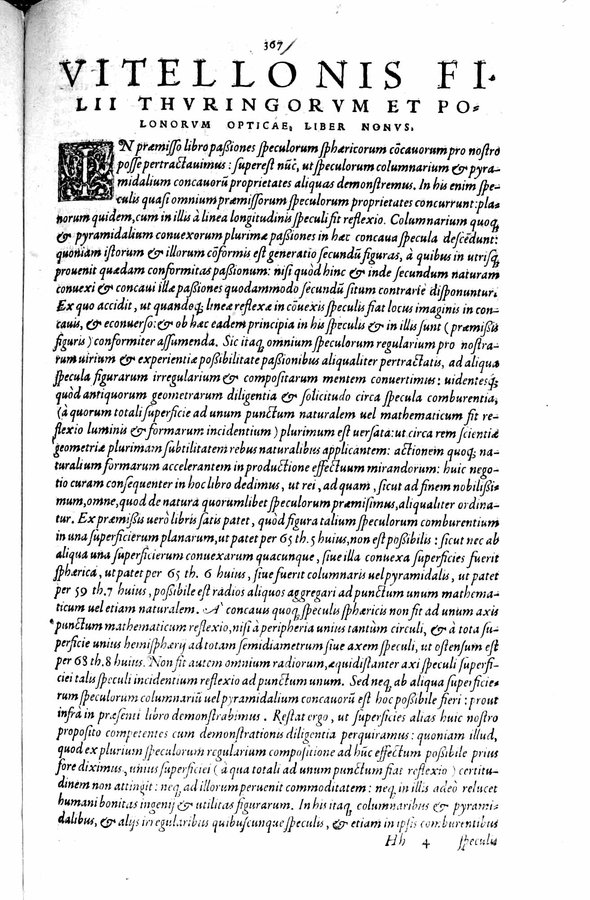 367
VITELLONIS FI-
LII THVRINGORVM ET PO-
LONORVM OPTICAE, LIBER NONVS.
IN præmisso libro passiones speculorum sphæricorum cōcauorum pro nostro
posse pertractauimus: superest nūc, ut speculorum columnarium & pyra-
midalium concauorū proprietates aliquas demonstremus. In his enim spe-
culis quasi omnium præmissorum speculorum proprietates concurrunt: pla-
norum quidem, cum in illis à linea longitudinis speculi fit reflexio. Columnarium quoq;
& pyramidalium conuexorum plurimæ passiones in hæc concaua specula descēdunt:
quoniam istorum & illorum cōformis est generatio secundū figuras, à quibus in utrisq;
prouenit quædam conformitas passionum: nisi quòd hinc & inde secundum naturam
conuexi & concaui illæ passiones quodammodo secundū situm contrariè disponuntur.
Ex quo accidit, ut quandoq; lineæ reflexæ in cōuexis speculis fiat locus imaginis in con-
cauis, & econuerso: & ob hæc eadem principia in his speculis & in illis sunt (præmissis
figuris) conformiter assumenda. Sic itaq; omnium speculorum regularium pro nostra-
rum uirium & experientiæ possibilitate passionibus aliqualiter pertractatis, ad aliqua
specula figurarum irregularium & compositarum mentem conuertimus: uidentesq;
quòd antiquorum geometrarum diligentia & solicitudo circa specula comburentia,
(à quorum totali superficie ad unum punctum naturalem uel mathematicum fit re-
flexio luminis & formarum incidentium) plurimum est uersata: ut circa rem scientiæ
geometriæ plurimam subtilitatem rebus naturalibus applicantem: actionem quoq; na-
turalium formarum accelerantem in productione effectuum mirandorum: huic nego-
tio curam consequenter in hoc libro dedimus, ut rei, ad quam, sicut ad finem nobilissi-
mum, omne, quod de natura quorumlibet speculorum præmisimus, aliqualiter ordina-
tur. Ex præmissis uerò libris satis patet, quòd figura talium speculorum comburentium
in una superficierum planarum, ut patet per 65 th. 5 huius, non est possibilis: sicut nec ab
aliqua una superficierum conuexarum quacunque, siue illa conuexa superficies fuerit
sphærica, ut patet per 65 th. 6 huius, siue fuerit columnaris uel pyramidalis, ut patet
per 59 th. 7 huius, possibile est radios aliquos aggregari ad punctum unum mathema-
ticum uel etiam naturalem. A' concauis quoq; speculis sphæricis non fit ad unum axis
punctum mathematicum reflexio, nisi à peripheria unius tantùm circuli, & à tota su-
perficie unius hemisphærij ad totam semidiametrum siue axem speculi, ut ostensum est
per 68 th. 8 huius. Non fit autem omnium radiorum, æquidistanter axi speculi superfi-
ciei talis speculi incidentium reflexio ad punctum unum. Sed neq; ab aliqua superficie-
rum speculorum columnariū uel pyramidalium concauorū est hoc possibile fieri: prout
infrà in præsenti libro demonstrabimus. Restat ergo, ut superficies alias huic nostro
proposito competentes cum demonstrationis diligentia perquiramus: quoniam illud,
quod ex plurium speculorum regularium compositione ad hūc effectum possibile prius
fore diximus, unius superficiei (à qua totali ad unum punctum fiat reflexio) certitu-
dinem non attingit: neq; ad illorum peruenit commoditatem: neq; in illis adeò relucet
humani bonitas ingenij & utilitas figurarum. In his itaq; columnaribus & pyrami-
dalibus, & alijs irregularibus quibuscunque speculis, & etiam in ipsis comburentibus
Hh 4 speculis